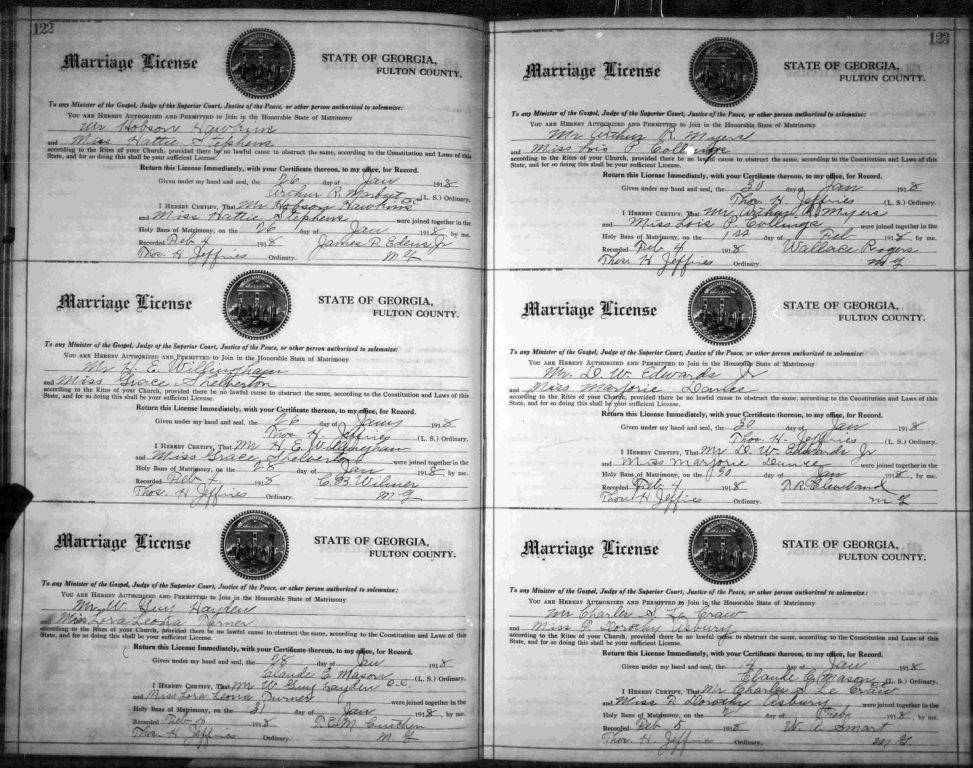 122
Marriage License
STATE OF GEORGIA,
FULTON COUNTY.
To any Minister of the Gospel, Judge of the Superior Court, Justice of the Peace, or other person authorized to solemnize:
YOU ARE HEREBY AUTHORIZED AND PERMITTED to Join in the Honorable State of Matrimony
Mr Hobson Hawkins
and Miss Hattie Stephens
according to the Rites of your Church, provided there be no lawful cause to obstruct the same, according to the Constitution and Laws of this
State, and for so doing this shall be your sufficient License.
Return this License Immediately, with your Certificate thereon, to my office, for Record.
Given under my hand and seal, the 26 day of Jan 1918
Arthur R (L. S.) Ordinary.
I HEREBY CERTIFY, That Mr Hobson Hawkins
and Miss Hattie Stephens were joined together in the
Holy Bans of Matrimony, on the 26 day of Jan 1918, by me.
Recorded Feb 4 1918 James D Edens Jr
Thos. H Jeffries Ordinary. M G
Marriage License
STATE OF GEORGIA,
FULTON COUNTY.
To any Minister of the Gospel, Judge of the Superior Court, Justice of the Peace, or other person authorized to solemnize:
YOU ARE HEREBY AUTHORIZED AND PERMITTED to Join in the Honorable State of Matrimony
Mr H. E. Willingham
and Miss Grace Shelverton
according to the Rites of your Church, provided there be no lawful cause to obstruct the same, according to the Constitution and Laws of this
State, and for so doing this shall be your sufficient License.
Return this License Immediately, with your Certificate thereon, to my office, for Record.
Given under my hand and seal, the 26 day of Jany 1918
Thos. H. Jeffries (L. S.) Ordinary.
I HEREBY CERTIFY, That Mr H. E. Willingham
and Miss Grace Shelverton were joined together in the
Holy Bans of Matrimony, on the 28 day of Jan 1918, by me.
Recorded Feb 4 1918 C. B Wilmer
Thos. H Jeffries Ordinary. M G
Marriage License
STATE OF GEORGIA,
FULTON COUNTY.
To any Minister of the Gospel, Judge of the Superior Court, Justice of the Peace, or other person authorized to solemnize:
YOU ARE HEREBY AUTHORIZED AND PERMITTED to Join in the Honorable State of Matrimony
Mr W. Guy Hayden
and Miss Lora Leona Turner
according to the Rites of your Church, provided there be no lawful cause to obstruct the same, according to the Constitution and Laws of this
State, and for so doing this shall be your sufficient License.
Return this License Immediately, with your Certificate thereon, to my office, for Record.
Given under my hand and seal, the 28 day of Jan 1918
Claude C. Mason (L. S.) Ordinary.
I HEREBY CERTIFY, That Mr W Guy Hayden
and Miss Lora Leona Turner were joined together in the
Holy Bans of Matrimony, on the 31 day of Jan 1918, by me.
Recorded Feb 4 1918
Thos. H Jeffries Ordinary. M. G
123
Marriage License
STATE OF GEORGIA,
FULTON COUNTY.
To any Minister of the Gospel, Judge of the Superior Court, Justice of the Peace, or other person authorized to solemnize:
YOU ARE HEREBY AUTHORIZED AND PERMITTED to Join in the Honorable State of Matrimony
Mr Arthur R. Myers
and Miss Lois P. Collings
according to the Rites of your Church, provided there be no lawful cause to obstruct the same, according to the Constitution and Laws of this
State, and for so doing this shall be your sufficient License.
Return this License Immediately, with your Certificate thereon, to my office, for Record.
Given under my hand and seal, the 30 day of Jan 1918
Thos. H. Jeffries (L. S.) Ordinary.
I HEREBY CERTIFY, That Mr Arthur R. Myers
and Miss Lois P. Collings were joined together in the
Holy Bans of Matrimony, on the 1st day of Feb 1918, by me.
Recorded Feb 4 1918 Wallace Rogers
Thos. H Jeffries Ordinary. M G
Marriage License
STATE OF GEORGIA,
FULTON COUNTY.
To any Minister of the Gospel, Judge of the Superior Court, Justice of the Peace, or other person authorized to solemnize:
YOU ARE HEREBY AUTHORIZED AND PERMITTED to Join in the Honorable State of Matrimony
Mr. D. W. Edwards Jr
and Miss Marjorie
according to the Rites of your Church, provided there be no lawful cause to obstruct the same, according to the Constitution and Laws of this
State, and for so doing this shall be your sufficient License.
Return this License Immediately, with your Certificate thereon, to my office, for Record.
Given under my hand and seal, the 30 day of Jan 1918
Thos. H. Jeffries (L. S.) Ordinary.
I HEREBY CERTIFY, That Mr D. W. Edwards Jr
and Miss Marjorie were joined together in the
Holy Bans of Matrimony, on the 30 day of Jan 1918, by me.
Recorded Feb 4 1918 T. R. Cleveland
Thos. H Jeffries Ordinary. M G
Marriage License
STATE OF GEORGIA,
FULTON COUNTY.
To any Minister of the Gospel, Judge of the Superior Court, Justice of the Peace, or other person authorized to solemnize:
YOU ARE HEREBY AUTHORIZED AND PERMITTED to Join in the Honorable State of Matrimony
Mr Charles S. Le Craw
and Miss P. Dorothy Asbury
according to the Rites of your Church, provided there be no lawful cause to obstruct the same, according to the Constitution and Laws of this
State, and for so doing this shall be your sufficient License.
Return this License Immediately, with your Certificate thereon, to my office, for Record.
Given under my hand and seal, the 4 day of Jan 1918
Claude C. Mason (L. S.) Ordinary.
I HEREBY CERTIFY, That Mr Charles S Le Craw
and Miss P Dorothy Asbury were joined together in the
Holy Bans of Matrimony, on the day of Feb 1918, by me.
Recorded Feb 5 1918 W. A. Smart
Thos. H. Jeffries Ordinary. M G.